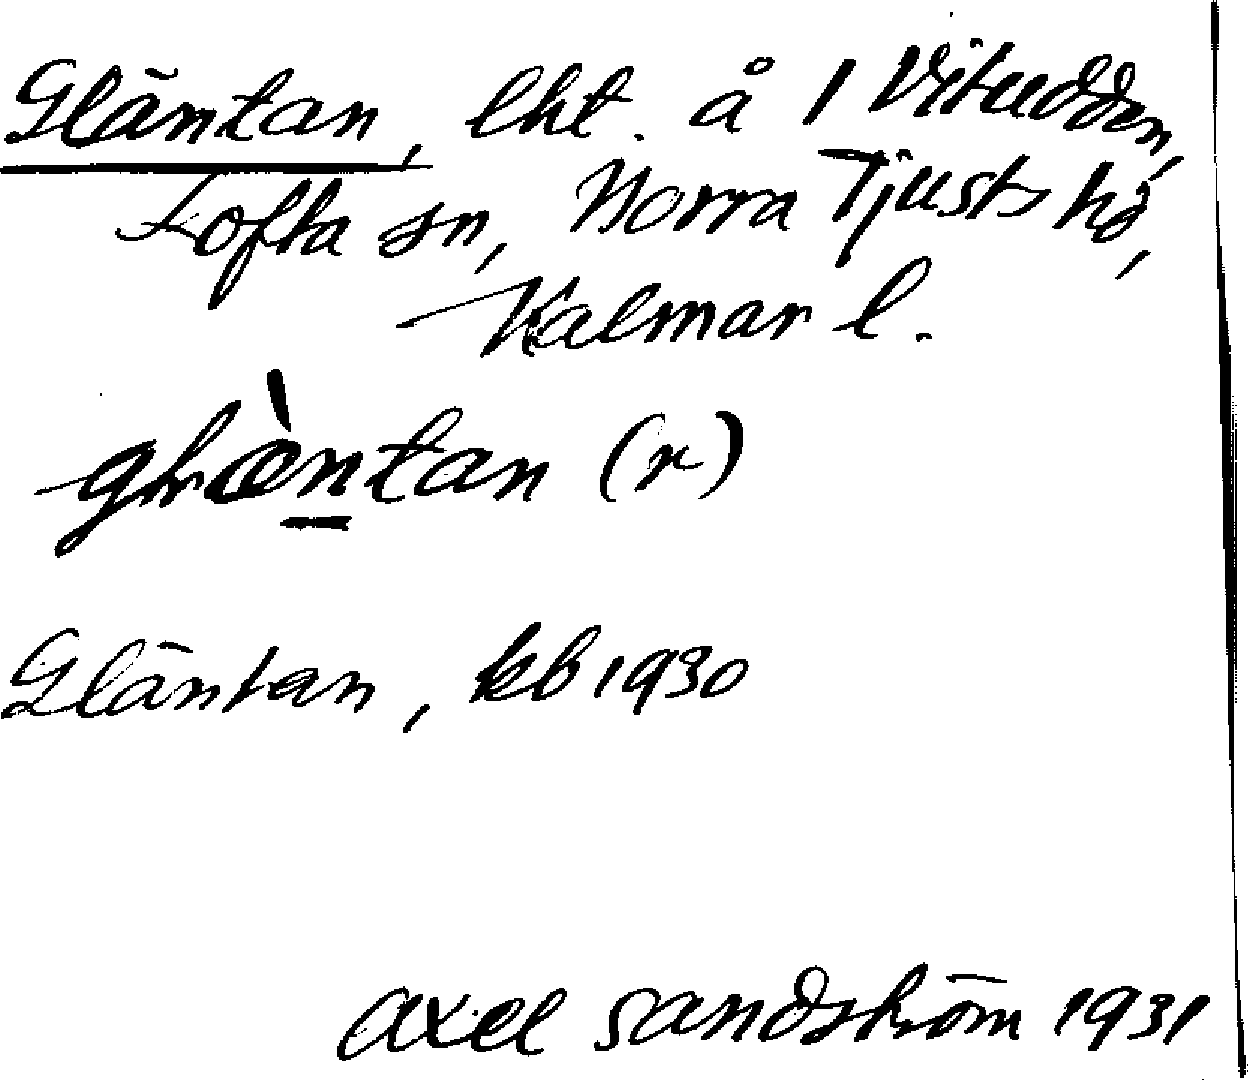 Gläntan, lht. å 1 Vitudden,
Lofta sn, Norra Tjusts hd,
Kalmar l.
glæ̀ntan (r)
Gläntan, kb 1930
Axel Sandström 1931